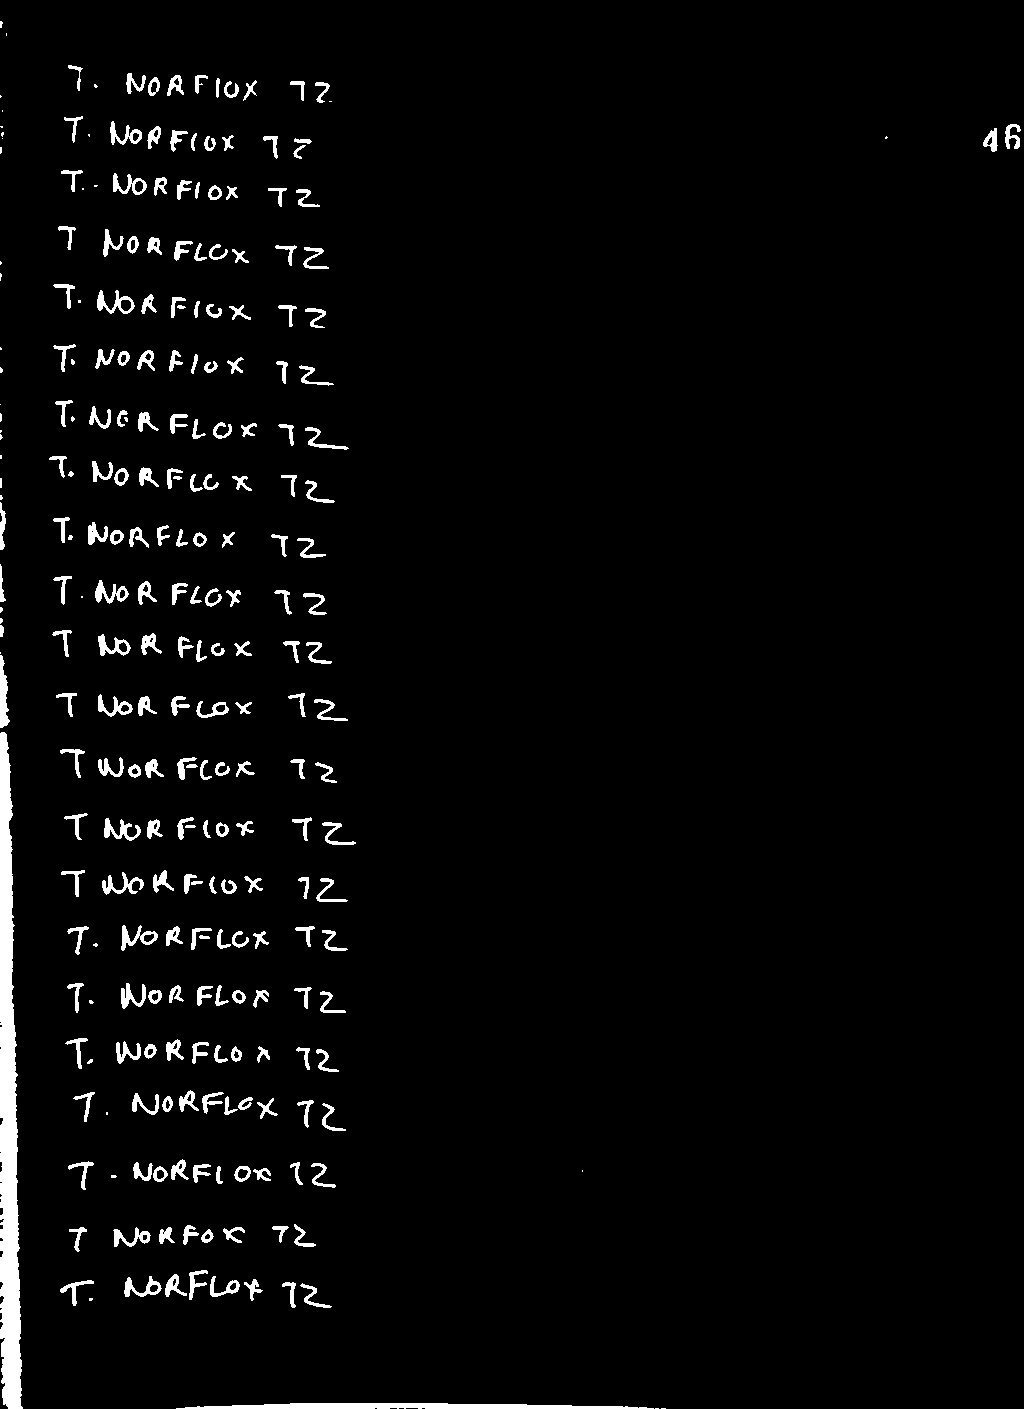 T. NORFLOX TZ
46
T. NORFLOX TZ
T. NORFLOX TZ
T NORFLOX TZ
T. NORFLOX TZ
T. NORFLOX TZ
T. NORFLOX TZ
T. NORFLOX TZ
T. NORFLOX TZ
T. NORFLOX TZ
T NORFLOX TZ
T NORFLOX TZ
T NORFLOX TZ
T NORFLOX TZ
T NORFLOX TZ
T. NORFLOX TZ
T. NORFLOX TZ
T. NORFLOX TZ
T. NORFLOX TZ
T - NORFLOX TZ
T NORFOX TZ
T. NORFLOX TZ